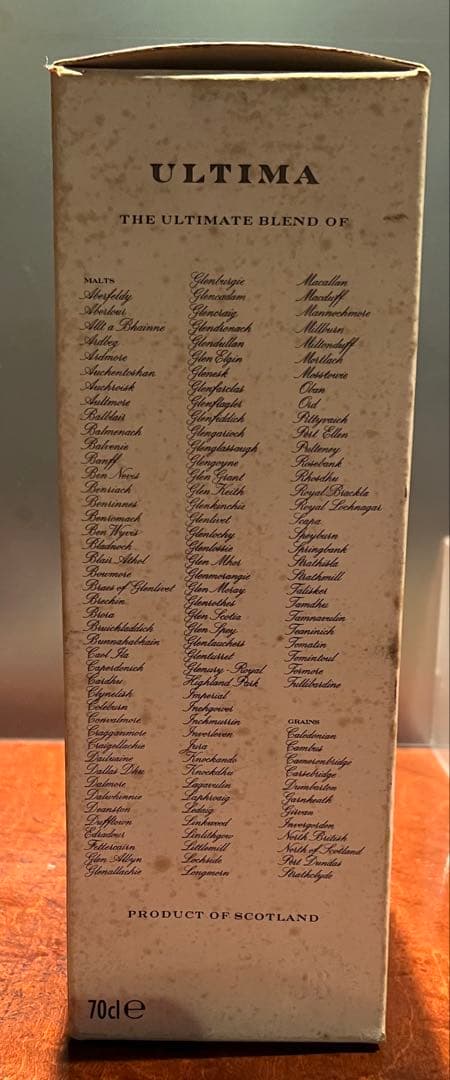 ULTIMA
THE ULTIMATE BLEND OF
MALTS
Aberfeldy
Aberlour
Allt a Bhainne
Ardbeg
Ardmore
Auchentoshan
Auchroisk
Aultmore
Balblair
Balmenach
Balvenie
Banff
Ben Nevis
Benriach
Benrinnes
Benromach
Ben Wyvis
Bladnoch
Blair Athol
Bowmore
Braes of Glenlivet
Brechin
Brora
Bruichladdich
Bunnahabhain
Caol Ila
Caperdonich
Cardhu
Clynelish
Coleburn
Convalmore
Cragganmore
Craigellachie
Dailuaine
Dallas Dhu
Dalmore
Dalwhinnie
Deanston
Dufftown
Edradour
Fettercairn
Glen Albyn
Glenallachie
Glenburgie
Glencadam
Glencraig
Glendronach
Glendullan
Glen Elgin
Glenesk
Glenfarclas
Glenflagler
Glenfiddich
Glengarioch
Glenglassaugh
Glengoyne
Glen Grant
Glen Keith
Glenkinchie
Glenlivet
Glenlochy
Glenlossie
Glen Mhor
Glenmorangie
Glen Moray
Glenrothes
Glen Scotia
Glen Spey
Glentauchers
Glenturret
Glenury - Royal
Highland Park
Imperial
Inchgower
Inchmurrin
Inverleven
Jura
Knockando
Knockdhu
Lagavulin
Laphroaig
Ledaig
Linkwood
Linlithgow
Littlemill
Lochside
Longmorn
Macallan
Macduff
Mannochmore
Millburn
Miltonduff
Mortlach
Mosstowie
Oban
Ord
Pittyvaich
Port Ellen
Pulteney
Rosebank
Rhosdhu
Royal Brackla
Royal Lochnagar
Scapa
Speyburn
Springbank
Strathisla
Strathmill
Talisker
Tamdhu
Tamnavulin
Teaninich
Tomatin
Tomintoul
Tormore
Tullibardine
GRAINS
Caledonian
Cambus
Cameronbridge
Carsebridge
Dumbarton
Garnheath
Girvan
Invergordon
North British
North of Scotland
Port Dundas
Strathclyde
PRODUCT OF SCOTLAND
70cl e